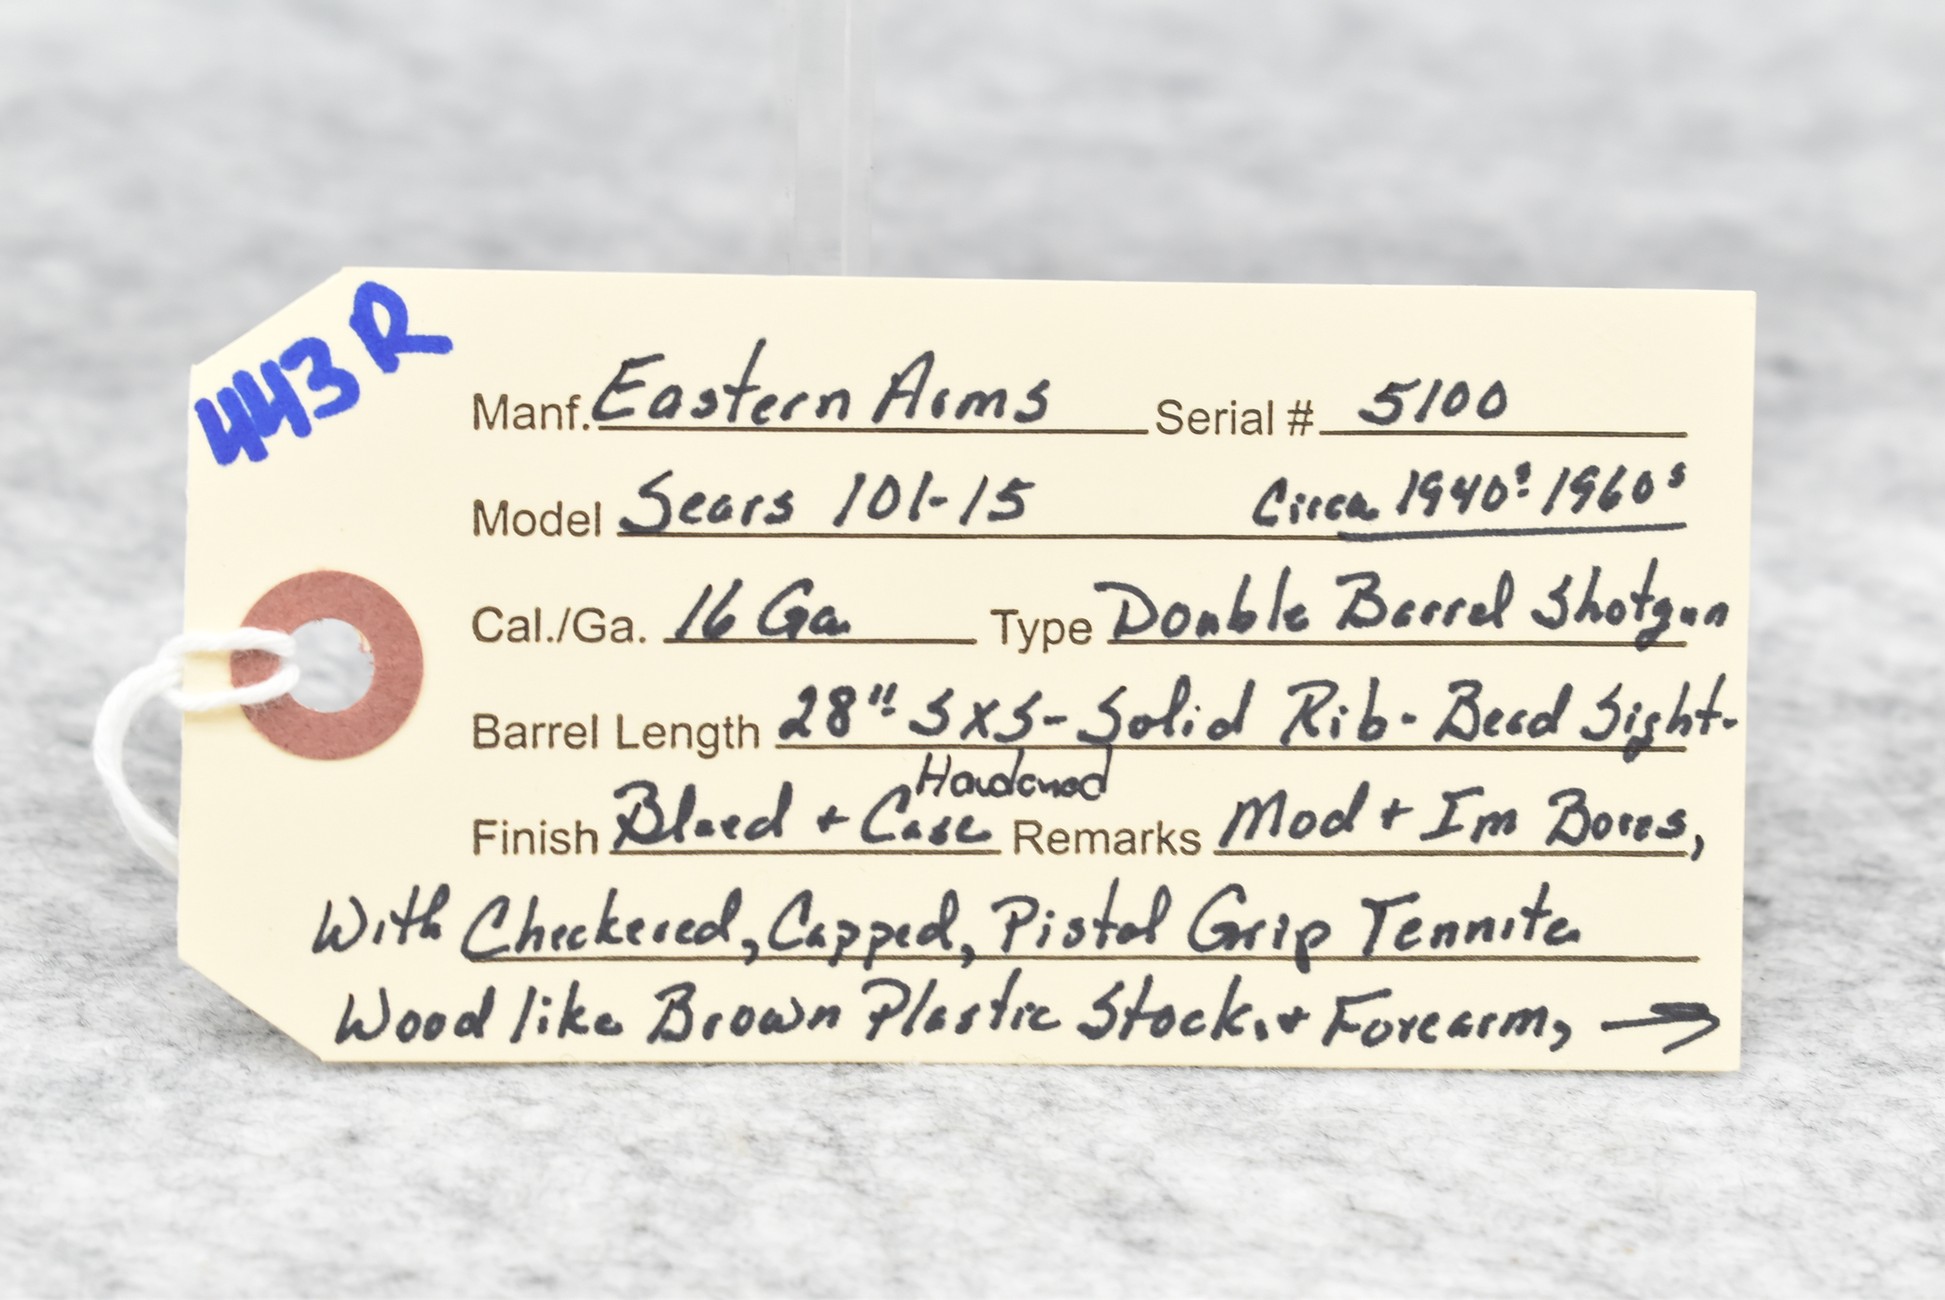 443 R
Manf. Eastern Arms Serial # 5100
Model Sears 101-15 Circa 1940s 1960s
Cal./Ga. 16 Ga. Type Double Barrel Shotgun
Barrel Length 28" SXS- Solid Rib- Bead Sight-
Hardened
Finish Blued + Case Remarks Mod + Im Bores,
With Checkered, Capped, Pistol Grip Tennite
Wood like Brown Plastic Stock, + Forearm, →